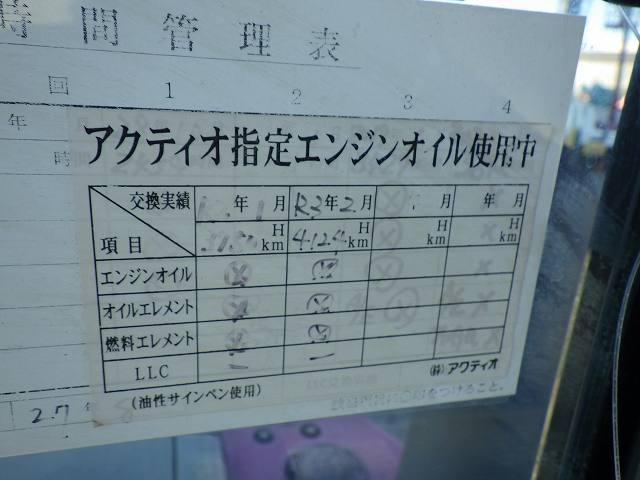 間管理表
回 1 2 3 4
年
時
アクティオ指定エンジンオイル使用中
交換実績 年 月 R3年2月 月 年 月
項目 H km 4124 H km H km H km
エンジンオイル
オイルエレメント
燃料エレメント
LLC - -
(油性サインペン使用)
(株)アクティオ
をつけること。
2.7 年